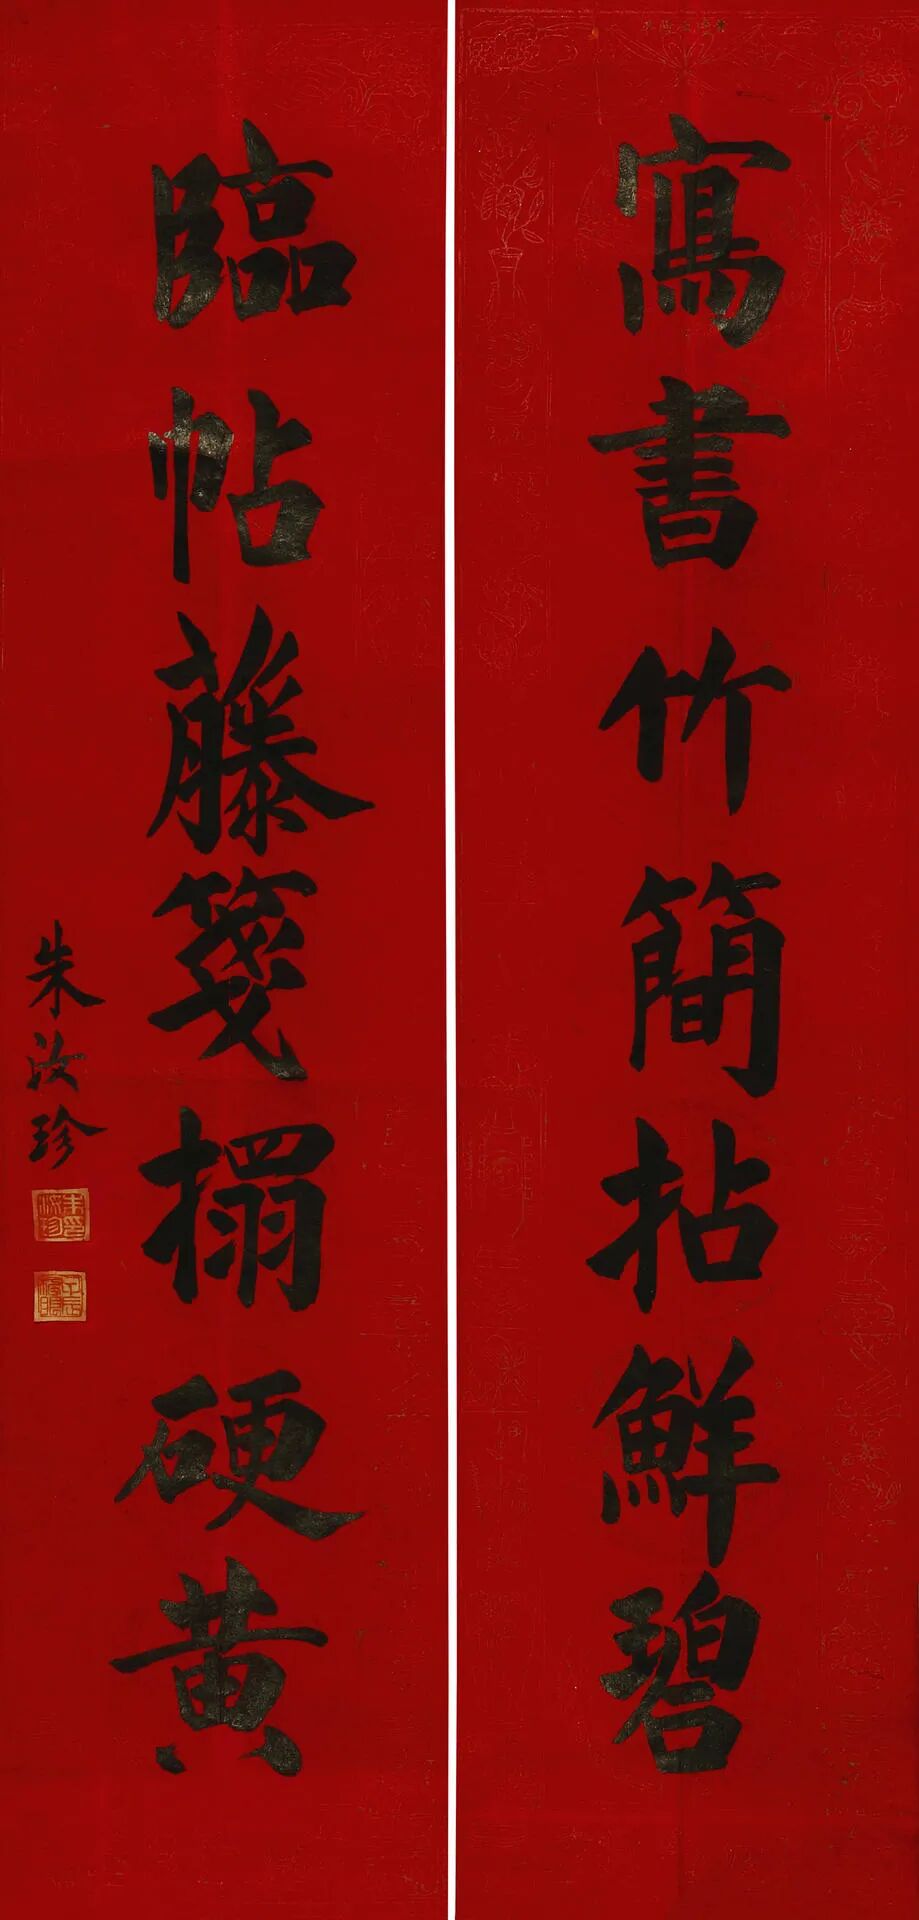 寫書竹簡拈鮮碧
臨帖藤箋搨硬黃
朱汝珍